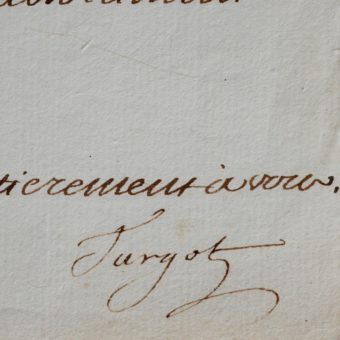 tierement à vous.
Turgot